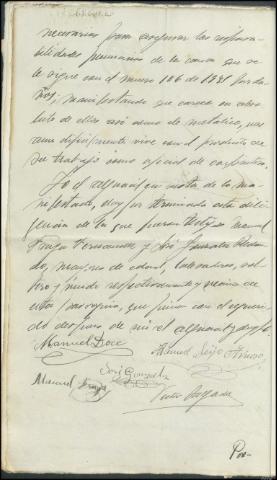 necesarios para asegurar las responsa-
bilidades pecuniarias de la causa que se
le sigue con el numero 106 de 1881 por da-
ños; manifestando que carece en abso-
luto de ellos asi como de metalico, pues
que dificilmente vive con el producto de
su trabajo como oficial de carpintero.
Yo el alguacil en vista de lo ma-
nifestado, doy por terminada esta dili-
gencia de la que fueron testigos Manuel
Hernandez y José Gonzalez
mayores de edad, labradores, sol-
tero y viudo respectivamente y vecinos de
esta parroquia, que firman con el requeri-
do despues de mi el alguacil y doy fe
Manuel Doce
Manuel Seijo
José Gonzalez
Manuel
Por-